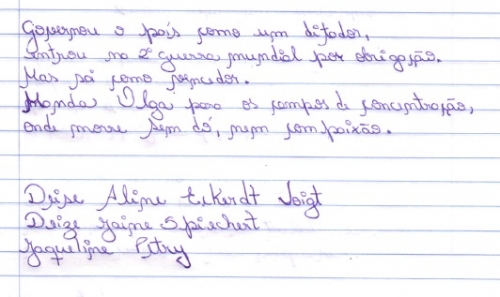 Governou o país como um ditador,
entrou na 2ª guerra mundial por obrigação.
Mas sai como vencedor.
Manda Olga para os campos de concentração,
onde morre sem dó, nem compaixão.
Deise Aline Eckerdt Voigt
Deize Jaine Spierchert
Jaqueline Petry